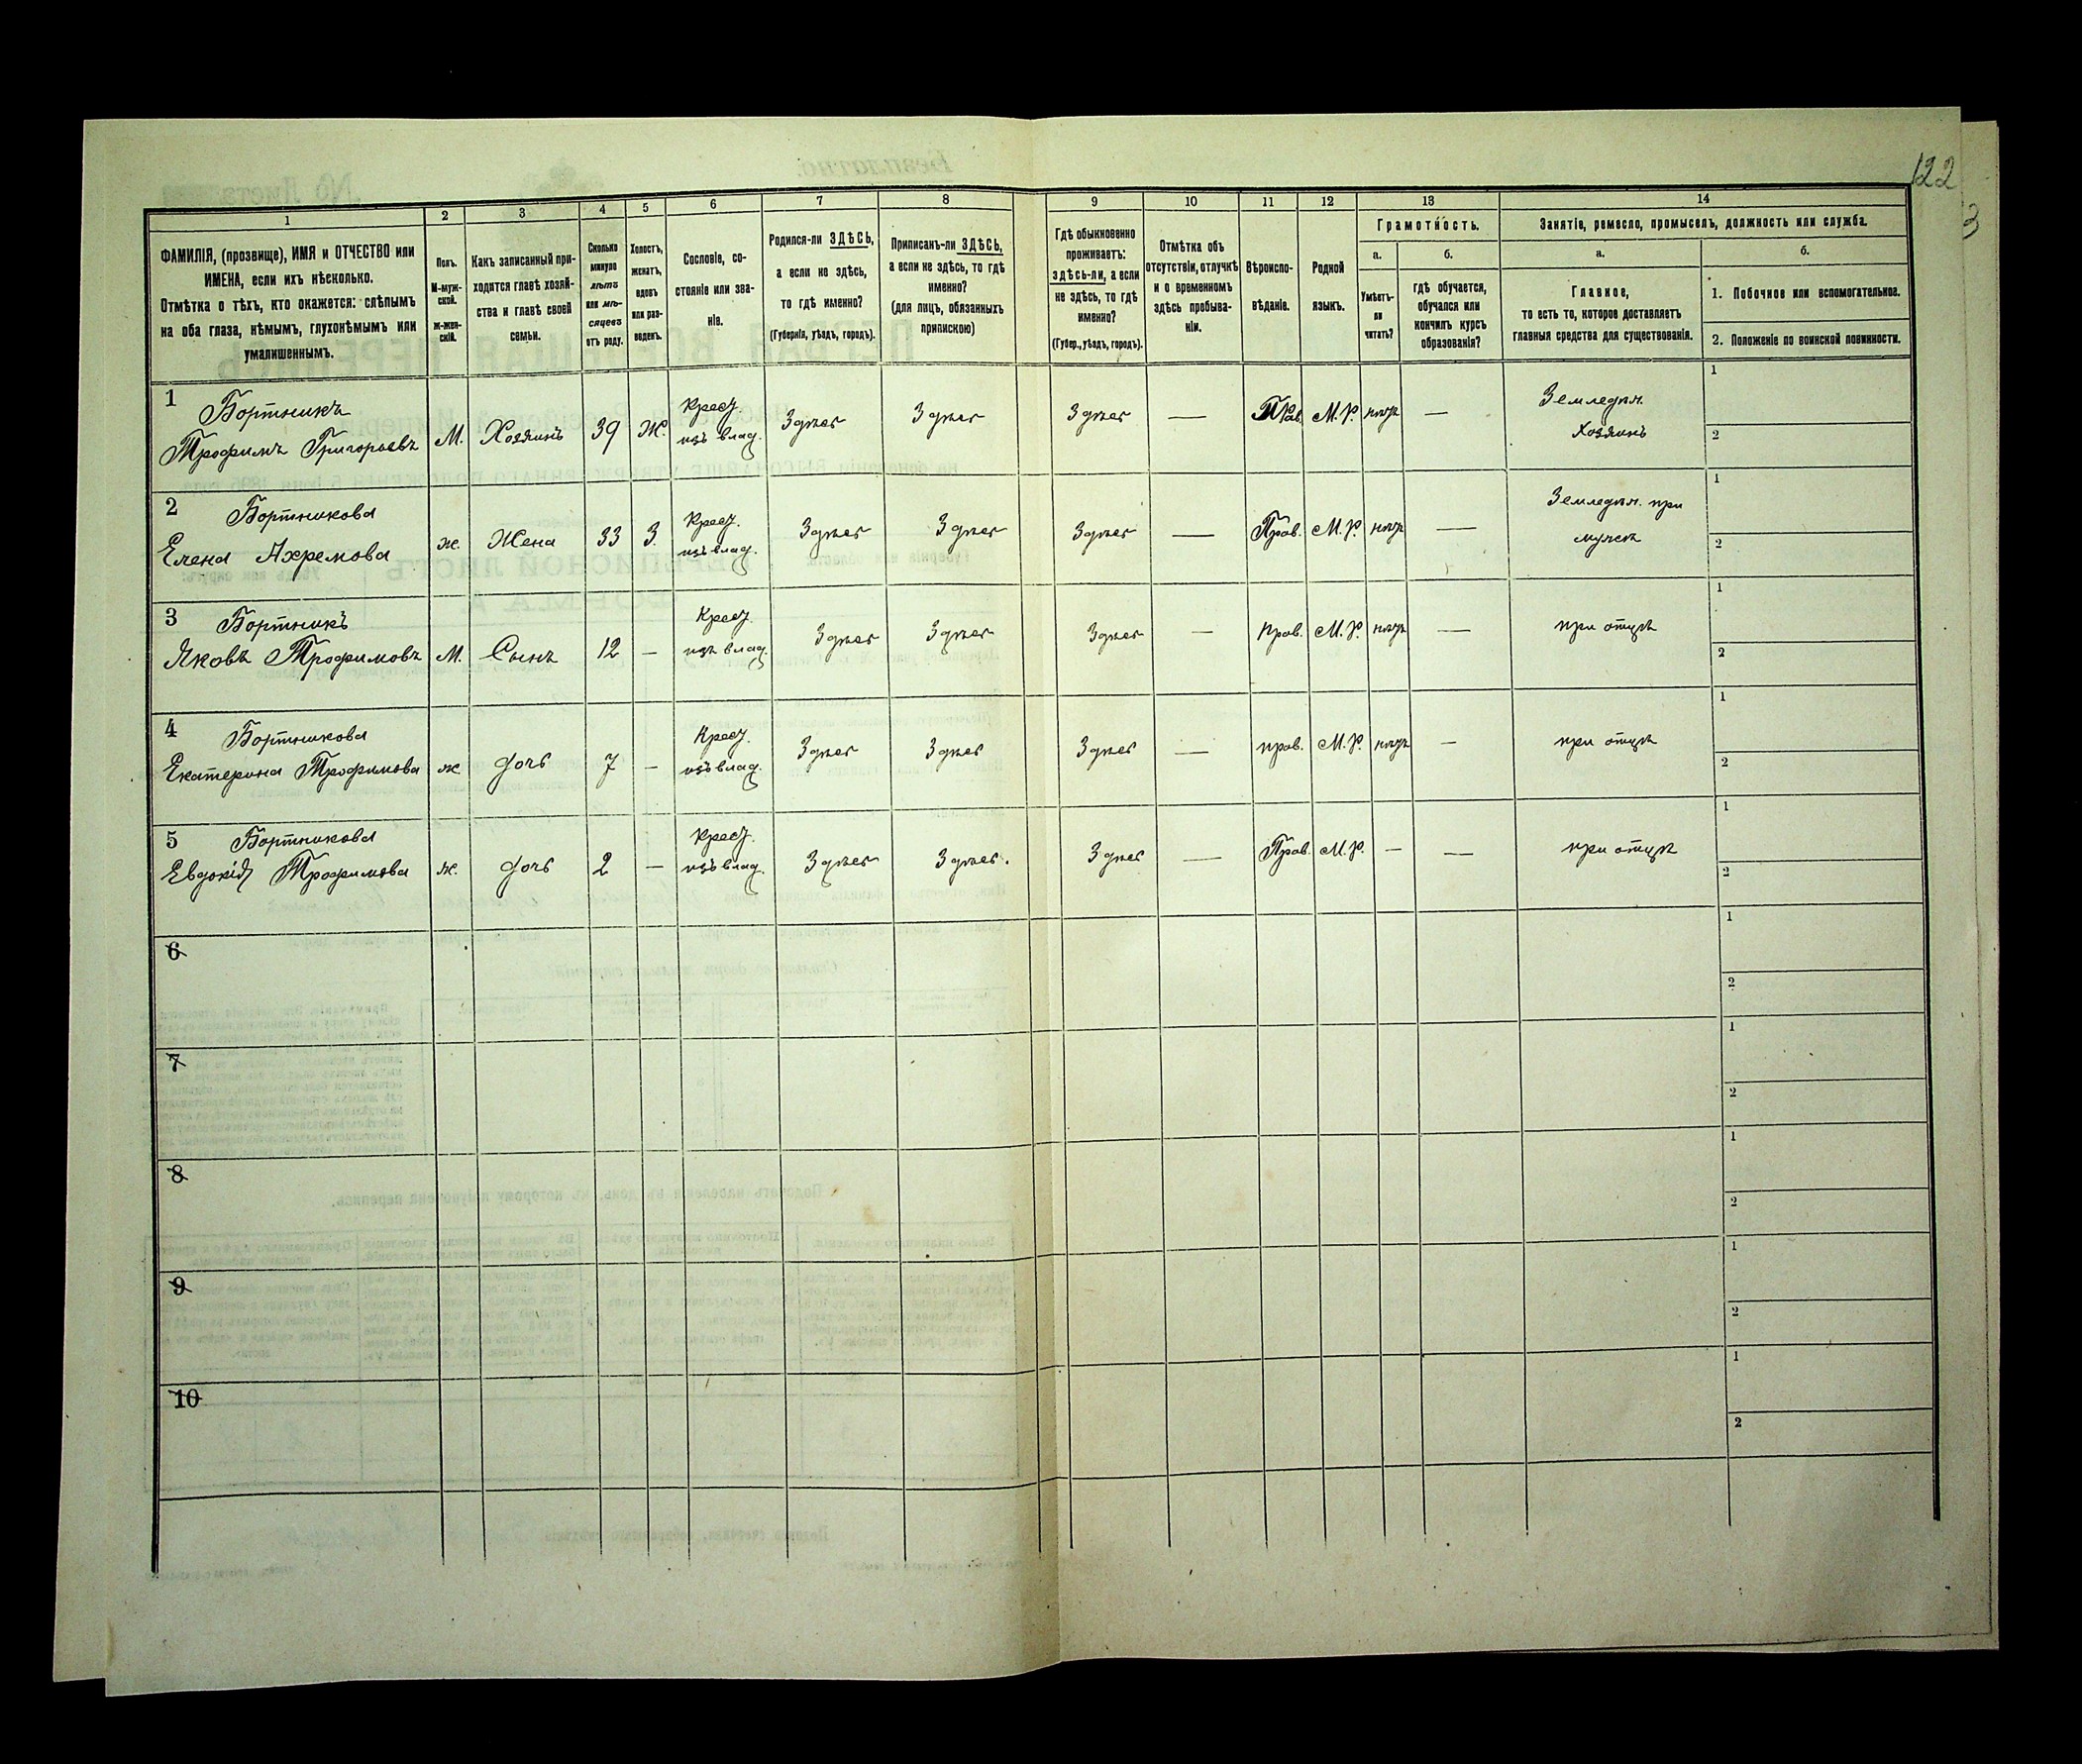 122
3
1 2 3 4 5 6 7 8 9 10 11 12 13 14
ФАМИЛІЯ, (прозвище), ИМЯ и ОТЧЕСТВО или
ИМЕНА, если ихъ нѣсколько.
Отмѣтка о тѣхъ, кто окажется: слѣпымъ
на оба глаза, нѣмымъ, глухонѣмымъ или
умалишеннымъ.
Полъ.
М-муж-
ской.
Ж-жен-
скій.
Какъ записанный при-
ходится главѣ хозяй-
ства и главѣ своей
семьи.
Сколько
минуло
лѣтъ
или мѣ-
сяцевъ
отъ роду.
Холостъ,
женатъ,
вдовъ
или раз-
веденъ.
Сословіе, со-
стояніе или зва-
ніе.
Родился-ли ЗДѢСЬ,
а если не здѣсь,
то гдѣ именно?
(Губернія, уѣздъ, городъ).
Приписанъ-ли ЗДѢСЬ,
а если не здѣсь, то гдѣ
именно?
(для лицъ, обязанныхъ
припискою)
Гдѣ обыкновенно
проживаетъ:
здѣсь-ли, а если
не здѣсь, то гдѣ
именно?
(Губер., уѣздъ, городъ).
Отмѣтка объ
отсутствіи, отлучкѣ
и о временномъ
здѣсь пребыва-
ніи.
Вѣроиспо-
вѣданіе.
Родной
языкъ.
Грамотность.
а.
Умѣетъ-
ли
читать?
б.
гдѣ обучается,
обучался или
кончилъ курсъ
образованія?
Занятіе, ремесло, промыселъ, должность или служба.
а.
Главное,
то есть то, которое доставляетъ
главныя средства для существованія.
б.
1. Побочное или вспомогательное.
2. Положеніе по воинской повинности.
1 Бортникъ Крест. Земледѣл. 1
Трофимъ Григорьевъ М. Хозяинъ 39 Ж. изъ влад. Здѣсь Здѣсь Здѣсь — Прав. М.Р. нѣтъ — Хозяинъ 2
2 Бортникова Крест. Земледѣл. при 1
Елена Ахремова ж. Жена 33 З. изъ влад. Здѣсь Здѣсь Здѣсь — Прав. М.Р. нѣтъ — мужѣ 2
3 Бортникъ Крест. 1
Яковъ Трофимовъ М. Сынъ 12 — изъ влад. Здѣсь Здѣсь Здѣсь — прав. М.Р. нѣтъ — при отцѣ 2
4 Бортникова Крест. 1
Екатерина Трофимова ж дочь 7 — изъ влад. Здѣсь Здѣсь Здѣсь — прав. М.Р. нѣтъ — при отцѣ 2
5 Бортникова Крест. 1
Евдокія Трофимова ж. дочь 2 — изъ влад. Здѣсь Здѣсь. Здѣсь — Прав. М.Р. — — при отцѣ 2
6 1
2
7 1
2
8 1
2
9 1
2
10 1
2